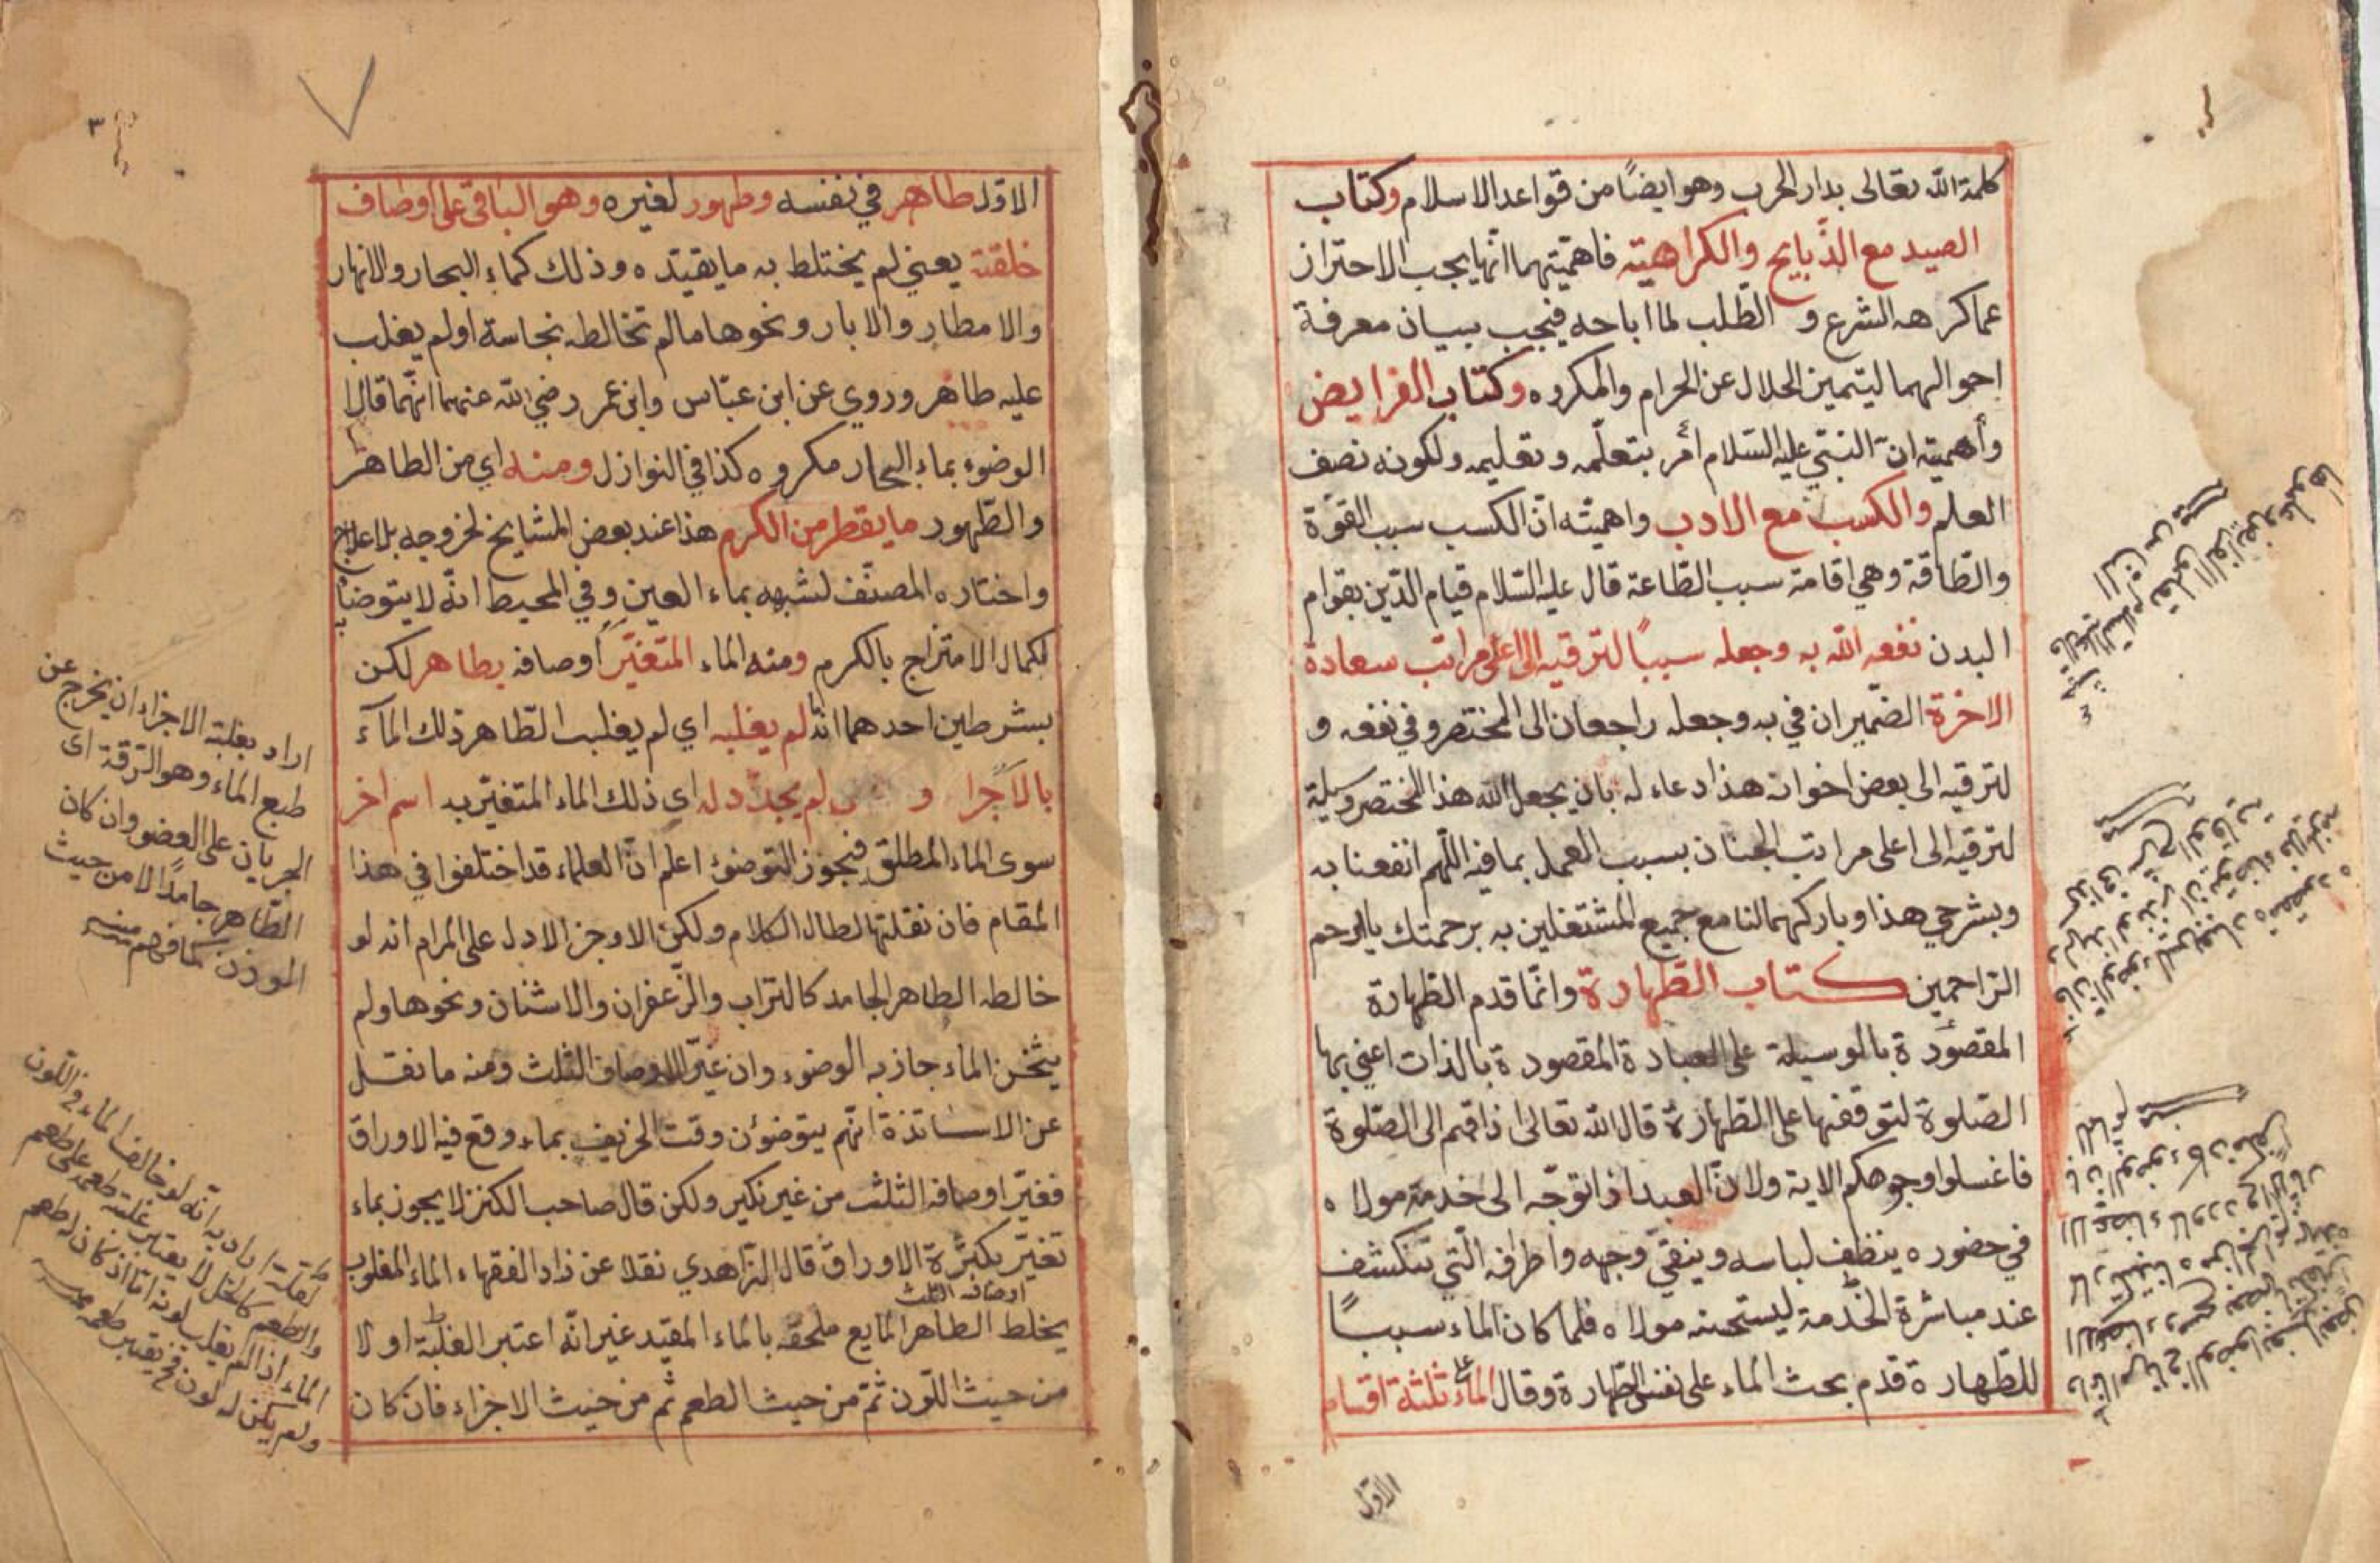 كلمة الله تعالى بدار الحرب وهو ايضًا من قواعد الاسلام وكتاب
الصيد مع الذبايح والكراهية فاهميتهما انها يجب الاحتراز
عما كرهه الشرع و الطلب لما اباحه فيجب ببيان معرفة
احوالهما ليتميز الحلال عن الحرام والمكروه وكتاب الفرايض
وأهميته ان النبي عليه السلام أمر بتعلمه وتعليمه ولكونه نصف
العلم والكسب مع الادب واهميته ان الكسب سبب القوة
والطاقة وهي اقامة سبب الطاعة قال عليه السلام قيام الدين بقوام
البدن نفعه الله به وجعله سببًا لترقيه الى اعلى مراتب سعادة
الاخرة الضميران في به وجعله راجعان الى المختصر وفي نفعه و
لترقيه الى بعض اخوان هذا دعاء له بان يجعل الله هذا المختصر وسيلة
لترقيه الى اعلى مراتب الجنان بسبب العمل بما فيه اللهم انفعنا به
وبشرحي هذا وباركهما لنا مع جميع المشتغلين به برحمتك يا ارحم
الراحمين كتاب الطهارة وانما قدم الطهارة
المقصودة بالوسيلة على العبادة المقصودة بالذات اعني بها
الصلوة لتوقفها على الطهارة قال الله تعالى اذا قمتم الى الصلوة
فاغسلوا وجوهكم الاية ولان العبد اذا توجه الى خدمة مولاه
في حضوره ينظف لباسه وينقي وجهه واطرافه التي تنكشف
عند مباشرة الخدمة ليستحسنه مولاه فلما كان الماء سببًا
للطهارة قدم بحث الماء على نفس الطهارة وقال الماء ثلثة اقسام
الاول
٣
الاول طاهر في نفسه وطهور لغيره وهو الباقي على اوصاف
خلقته يعني لم يختلط به ما يقيده وذلك كماء البحار والانهار
والامطار والابار ونحوها مالم تخالطه نجاسة او لم يغلب
عليه طاهر وروي عن ابن عباس وابن عمر رضي الله عنهما انهما قالا
الوضوء بماء البحار مكروه كذا في النوازل ومنه اي من الطاهر
والطهور ما يقطر من الكرم هذا عند بعض المشايخ لخروجه بلا علاج
واختاره المصنف لشبهه بماء العين وفي المحيط انه لا يتوضأ
لكمال الامتزاج بالكرم ومنه الماء المتغير اوصافه بطاهر لكن
بشرطين احدهما انه لم يغلبه اي لم يغلب الطاهر ذلك الماء
بالاجزا و لم يجدد له اي ذلك الماء المتغير به اسم اخر
سوى الماء المطلق فيجوز التوضؤ اعلم ان العلماء قد اختلفوا في هذا
المقام فان نقلتها لطال الكلام ولكن الاوجز الادل على المرام انه لو
خالطه الطاهر الجامد كالتراب والزعفران والاشنان ونحوها ولم
يثخن الماء جاز به الوضوء وان غير الاوصاف الثلث ومنه ما نقل
عن الاساتذة انهم يتوضؤن وقت الخريف بماء وقع فيه الاوراق
فغير اوصافه الثلث من غير نكير ولكن قال صاحب الكنز لا يجوز بماء
تغير بكثرة الاوراق قال الزاهدي نقلا عن زاد الفقهاء الماء المغلوب
اوصافه الثلث
يخلط الطاهر المايع ملحقه بالماء المقيد غير انه اعتبر الغلبة اولا
من حيث اللون ثم من حيث الطعم ثم من حيث الاجزاء فان كان
اراد بغلبة الاجزاء ان يخرج عن
طبع الماء وهو الرقة اى
الجريان على العضو وان كان
الطاهر جامدًا لا من حيث
الوزن كما فهم
اراد به انه لو خالف الماء في اللون
والطعم كالخل لا يعتبر غلبة طعمه على طعم
الماء اذا لم يغلب لونه اما اذا كان له طعم
ولم يكن له لون فح يعتبر طعمه